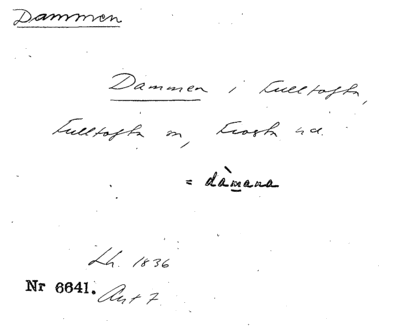 Dammen
Dammen i Fulltofta,
Fulltofta sn, Frosta hd.
= dàmana
Lh. 1836
Nr 6641. Akt 7